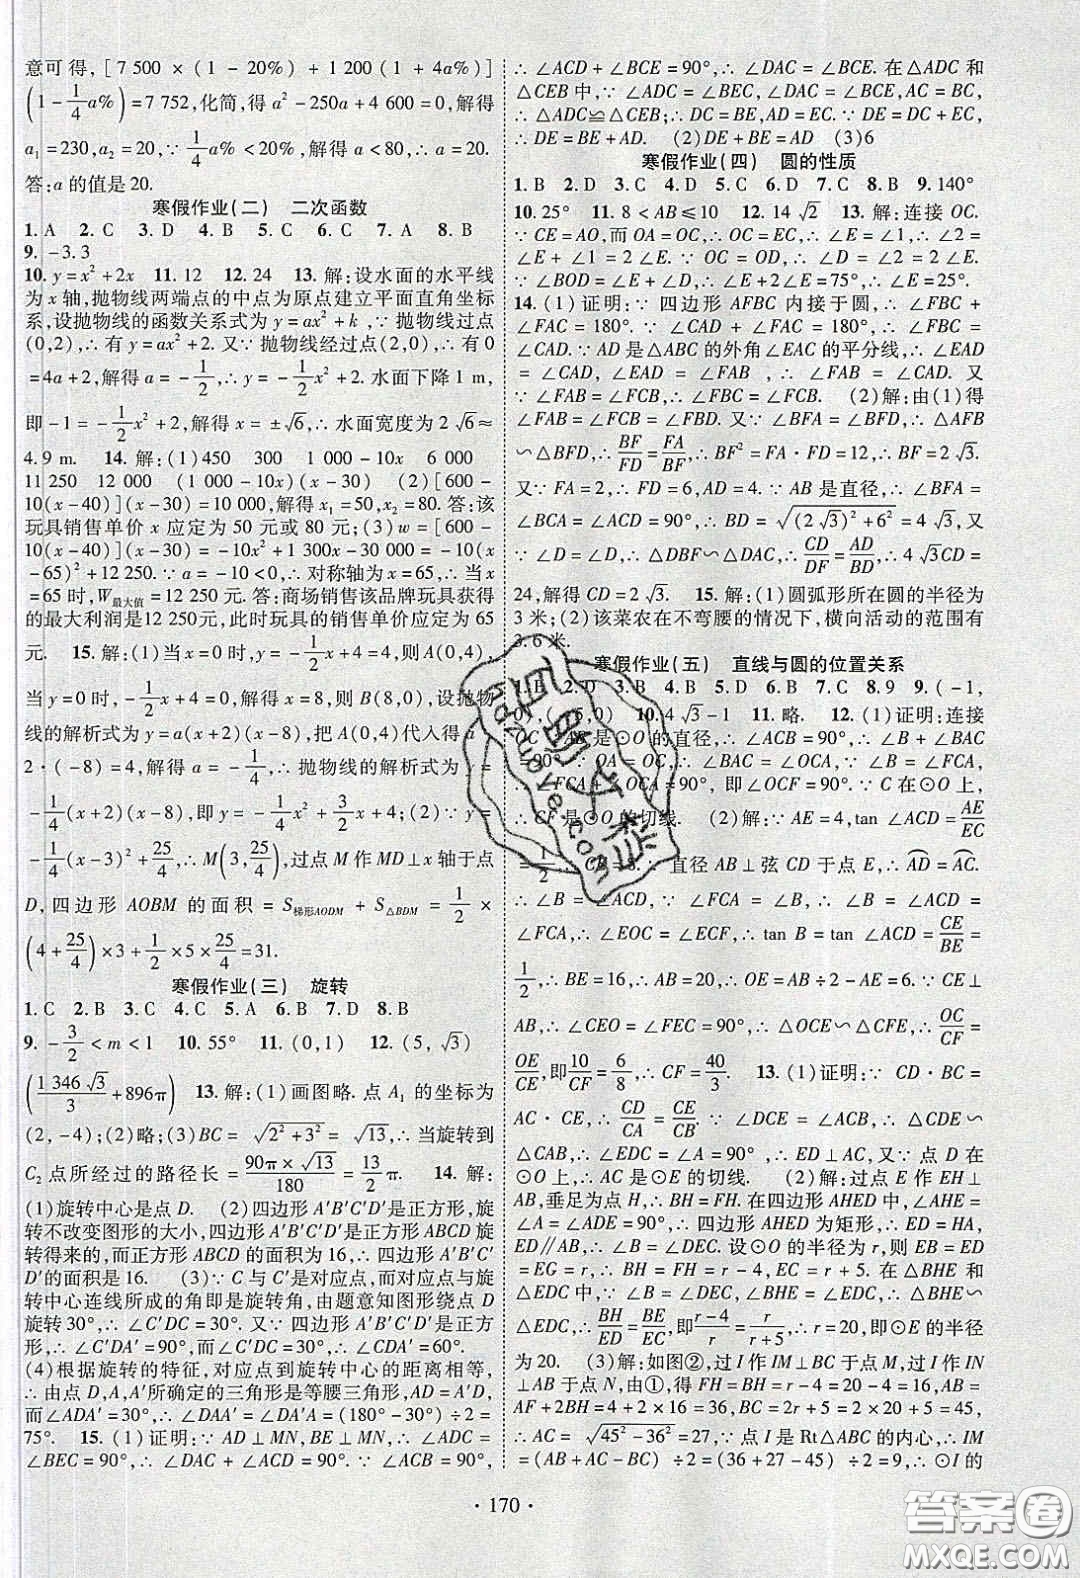 意可得,[7 500 ×(1-20%)+1 200(1+4a%)]
(1-1/4 a%)=7 752,化简,得 a²-250a+4 600=0,解得
a₁=230,a₂=20,∵ 1/4 a% <20%,解得 a<80,∴ a=20.
答:a 的值是 20.
寒假作业(二) 二次函数
1. A 2. C 3. D 4. B 5. C 6. C 7. A 8. B
9. -3. 3
10. y=x²+2x 11. 12 12. 24 13. 解:设水面的水平线
为 x 轴,抛物线两端点的中点为原点建立平面直角坐标
系,设抛物线的函数关系式为 y=ax²+k,∵ 抛物线过点
(0,2),∴ 有 y=ax²+2. 又∵ 抛物线经过点(2,0),∴ 有 0
=4a+2,解得 a=-1/2,∴ y=-1/2 x²+2. 水面下降 1 m,
即 -1=-1/2 x²+2,解得 x=±√6,∴ 水面宽度为 2√6≈
4.9 m. 14. 解:(1)450 300 1 000-10x 6 000
11 250 12 000 (1 000-10x)(x-30) (2)[600-
10(x-40)](x-30)=10 000,解得 x₁=50,x₂=80. 答:该
玩具销售单价 x 应定为 50 元或 80 元;(3) w=[600-
10(x-40)](x-30)=-10x²+1 300x-30 000=-10(x
-65)²+12 250. ∵ a=-10<0,∴ 对称轴为 x=65,∴ 当 x
=65 时,W最大值=12 250 元. 答:商场销售该品牌玩具获得
的最大利润是12 250元,此时玩具的销售单价应定为 65
元. 15. 解:(1)当 x=0时,y=-1/2 x+4=4,则 A(0,4),
当 y=0时,-1/2 x+4=0,解得 x=8,则 B(8,0),设抛物
线的解析式为 y=a(x+2)(x-8),把 A(0,4)代入得 a·
2·(-8)=4,解得 a=-1/4,∴ 抛物线的解析式为 y=
-1/4(x+2)(x-8),即 y=-1/4 x²+3/2 x+4;(2)∵ y=
-1/4(x-3)²+25/4,∴ M(3,25/4),过点 M 作 MD⊥x 轴于点
D,四边形 AOBM 的面积=S梯形AODM+S△BDM=1/2×
(4+25/4)×3+1/2×5×25/4=31.
寒假作业(三) 旋转
1. C 2. B 3. C 4. C 5. A 6. B 7. D 8. B
9. -3/2<m<1 10. 55° 11. (0,1) 12. (5,√3)
(1 346√3/3+896π) 13. 解:(1)画图略. 点 A₁ 的坐标为
(2,-4);(2)略;(3)BC=√(2²+3²)=√13,∴ 当旋转到
C₂ 点所经过的路径长=90π×√13/180=√13/2 π. 14. 解:
(1)旋转中心是点 D. (2)四边形 A′B′C′D′是正方形,旋
转不改变图形的大小,四边形 A′B′C′D′是正方形 ABCD 旋
转得来的,而正方形 ABCD 的面积为 16,∴ 四边形 A′B′C′
D′的面积是 16. (3)∵ C 与 C′是对应点,而对应点与旋
转中心连线所成的角即是旋转角,由题意知图形绕点 D
旋转30°,∴ ∠C′DC=30°. 又∵ 四边形 A′B′C′D′是正方
形,∴ ∠C′DA′=90°,∴ ∠CDA′=∠C′DA′-∠C′DC=60°.
(4)根据旋转的特征,对应点到旋转中心的距离相等,
∴ 由点 D,A,A′所确定的三角形是等腰三角形,AD=A′D,
而∠ADA′=30°,∴ ∠DAA′=∠DA′A=(180°-30°)÷2=
75°. 15. (1)证明:∵ AD⊥MN,BE⊥MN,∴ ∠ADC=
∠BEC=90°,∴ ∠DAC+∠ACD=90°. ∵ ∠ACB=90°,
∴ ∠ACD+∠BCE=90°,∴ ∠DAC=∠BCE. 在△ADC 和
△CEB 中,∵ ∠ADC=∠BEC,∠DAC=∠BCE,AC=BC,
∴ △ADC≌△CEB;∴ DC=BE,AD=EC. ∵ DE=DC+EC,
∴ DE=BE+AD. (2)DE+BE=AD (3)6
寒假作业(四) 圆的性质
1. B 2. D 3. C 4. D 5. C 6. D 7. C 8. B 9. 140°
10. 25° 11. 8<AB≤10 12. 14√2 13. 解:连接 OC.
∵ CE=AO,而 OA=OC,∴ OC=EC,∴ ∠E=∠1,∴ ∠2
=∠E+∠1=2∠E. ∵ OC=OD,∴ ∠D=∠2=2∠E.
∵ ∠BOD=∠E+∠D,∴ ∠E+2∠E=75°,∴ ∠E=25°.
14. (1)证明:∵ 四边形 AFBC 内接于圆,∴ ∠FBC+
∠FAC=180°. ∵ ∠CAD+∠FAC=180°,∴ ∠FBC=
∠CAD. ∵ AD 是△ABC 的外角∠EAC 的平分线,∴ ∠EAD
=∠CAD. ∵ ∠EAD=∠FAB,∴ ∠FAB=∠CAD. 又
∵ ∠FAB=∠FCB,∴ ∠FBC=∠FCB. (2)解:由(1)得
∠FAB=∠FCB=∠FBD. 又∵ ∠BFA=∠BFD,∴ △AFB
∽△BFD,∴ BF/FD=FA/BF,∴ BF²=FA·FD=12,∴ BF=2√3.
又∵ FA=2,∴ FD=6,AD=4. ∵ AB 是直径,∴ ∠BFA=
∠BCA=∠ACD=90°,∴ BD=√((2√3)²+6²)=4√3,又
∵ ∠D=∠D,∴ △DBF∽△DAC,∴ CD/DF=AD/BD,∴ 4√3CD=
24,解得 CD=2√3. 15. 解:(1)圆弧形所在圆的半径为
3 米;(2)该菜农在不弯腰的情况下,横向活动的范围有
3.6 米.
寒假作业(五) 直线与圆的位置关系
1. B 2. D 3. B 4. B 5. D 6. B 7. C 8. 9 9. (-1,
0),( 5,0) 10. 4√3-1 11. 略. 12. (1)证明:连接
OC. AB 是⊙O 的直径,∴ ∠ACB=90°,∴ ∠B+∠BAC
=90°. ∵ OA=OC,∴ ∠BAC=∠OCA,∵ ∠B=∠FCA,
∴ ∠FCA+∠OCA=90°,即∠OCF=90°. ∵ C 在⊙O 上,
∴ CF 是⊙O 的切线. (2)解:∵ AE=4,tan∠ACD=AE/EC
=1/2,CE=8. ∵ 直径 AB⊥弦 CD 于点 E,∴ AD=AC.
∴ ∠B=∠ACD,∵ ∠FCA=∠B,∴ ∠ACD=
∠FCA,∴ ∠EOC=∠ECF,∴ tan B=tan∠ACD=CE/BE=
1/2,∴ BE=16,∴ AB=20,∴ OE=AB÷2-AE=6. ∵ CE⊥
AB,∴ ∠CEO=∠FEC=90°,∴ △OCE∽△CFE,∴ OC/CF=
OE/CE,即10/CF=6/8,∴ CF=40/3. 13. (1)证明:∵ CD·BC=
AC·CE,∴ CD/CA=CE/CB. ∵ ∠DCE=∠ACB,∴ △CDE∽
△CAB,∴ ∠EDC=∠A=90°,∴ ED⊥AC. 又∵ 点 D 在
⊙O 上,∴ AC 是⊙E 的切线. (2)解:过点 E 作 EH⊥
AB,垂足为点 H,∴ BH=FH. 在四边形 AHED 中,∠AHE
=∠A=∠ADE=90°,∴ 四边形 AHED 为矩形,∴ ED=HA,
ED∥AB,∴ ∠B=∠DEC. 设⊙O 的半径为 r,则 EB=ED
=EG=r,∴ BH=FH=r-4,EC=r+5. 在△BHE 和
△EDC 中,∵ ∠B=∠DEC,∠BHE=∠EDC,∴ △BHE∽
△EDC,∴ BH/ED=BE/EC,即(r-4)/r=r/(r+5),∴ r=20,即⊙E 的半径
为 20. (3)解:如图②,过 I 作 IM⊥BC 于点 M,过 I 作 IN
⊥AB 于点 N,由①,得 FH=BH=r-4=20-4=16,AB=
AF+2BH=4+2×16=36,BC=2r+5=2×20+5=45,
∴ AC=√(45²-36²)=27. ∵ 点 I 是 Rt△ABC 的内心,∴ IM
=(AB+AC-BC)÷2=(36+27-45)÷2=9,∴ ⊙I 的
·170·
答案圈
MXQE.COM